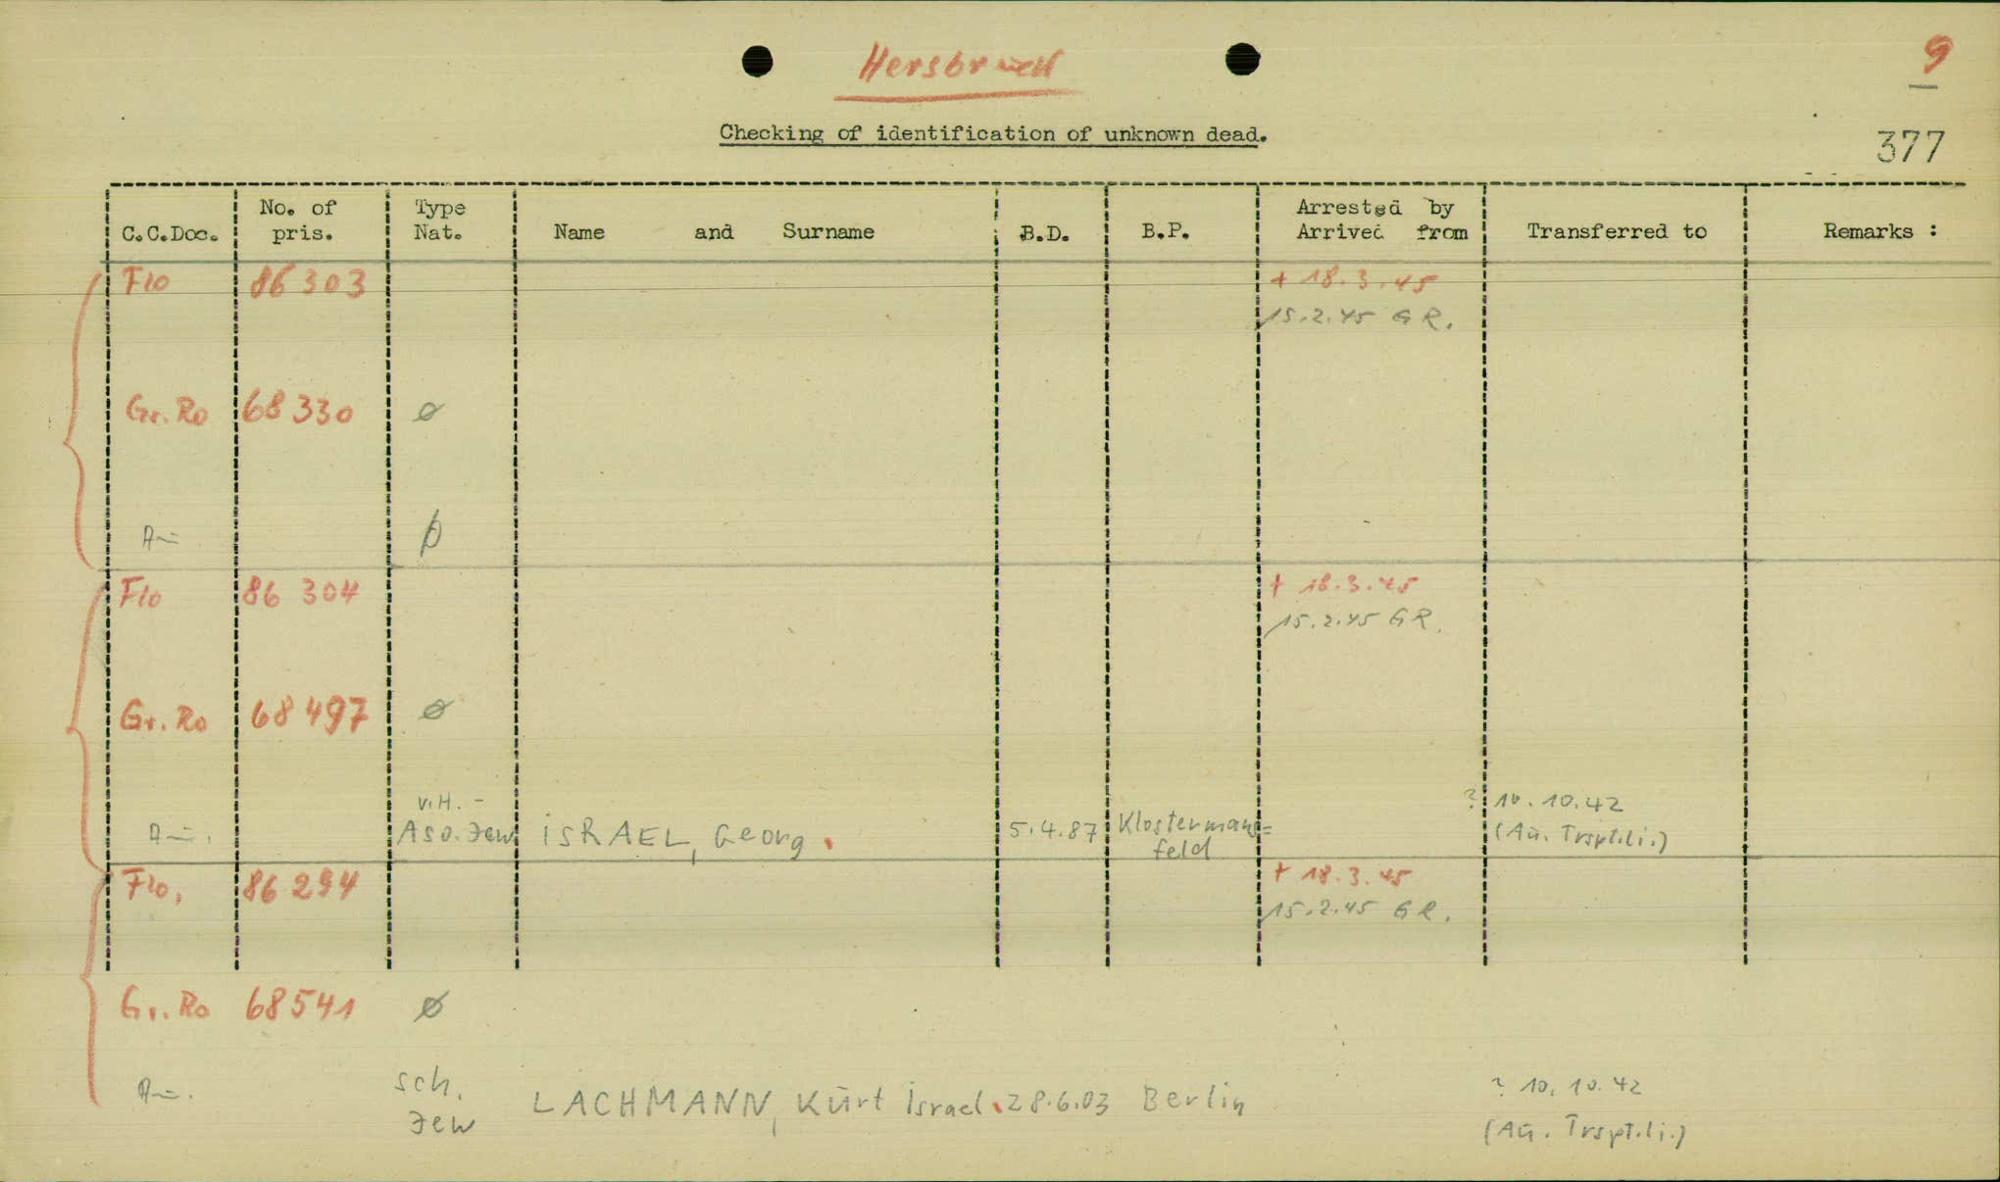 Hersbruck
9
Checking of identification of unknown dead.
377
C.C.Doc. No. of pris. Type Nat. Name and Surname B.D. B.P. Arrested by Arrived from Transferred to Remarks :
Flo 86 303 + 18.3.45
15.2.45 GR.
Gr. Ro 68 330 ø
ø
Flo 86 304 + 18.3.45
15.2.45 GR.
Gr. Ro 68 497 ø
v.H. - ? 10.10.42
Aso. Jew ISRAEL, Georg. 5.4.87 Klostermans= (Au. Trsptli.)
feld
Flo, 86 294 + 18.3.45
15.2.45 GR.
Gr. Ro 68541 ø
sch. ? 10.10.42
Jew LACHMANN, Kurt Israel. 28.6.03 Berlin (Au. Trspt.li.)